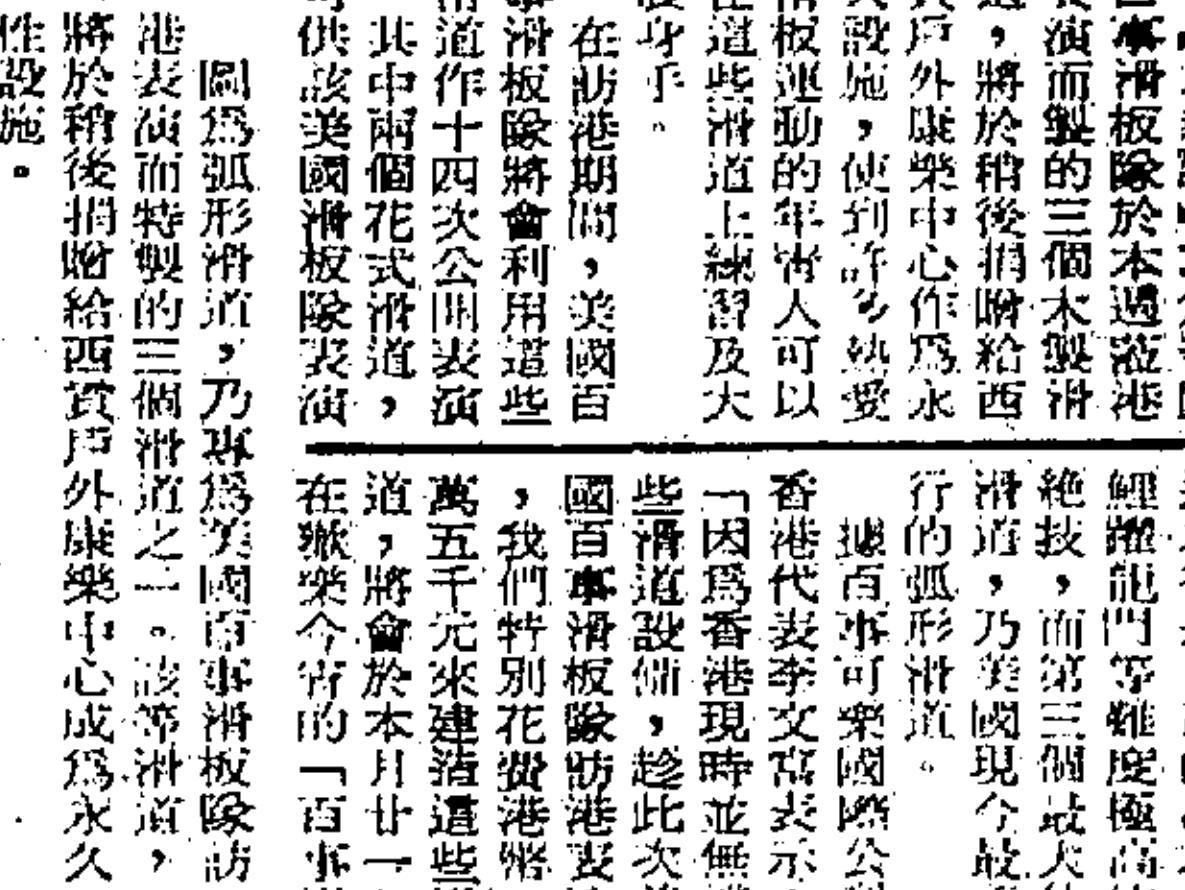 事滑板隊於本週蒞港
演而製的三個木製滑
，將於稍後捐贈給西
戶外康樂中心作爲永
設施，使到許多熱愛
板運動的年宵人可以
在這些滑道上練習及大
身手。
在訪港期間，美國百
事滑板隊將會利用這些
滑道作十四次公開表演
其中兩個花式滑道，
供該美國滑板隊表演
鯉躍龍門等難度極高
絕技，而第三個最大
滑道，乃美國現今最
行的弧形滑道。
據百事可樂國際公
香港代表李文富表示
「因爲香港現時並無
些滑道設備，趁此次
國百事滑板隊訪港表
，我們特別花費港幣
萬五千元來建造這些
道，將會於本月廿一
在歡樂今宵的「百事
圖爲弧形滑道，乃專爲美國百事滑板隊訪
港表演而特製的三個滑道之一。該等滑道，
將於稍後捐贈給西貢戶外康樂中心成爲永久
性設施。